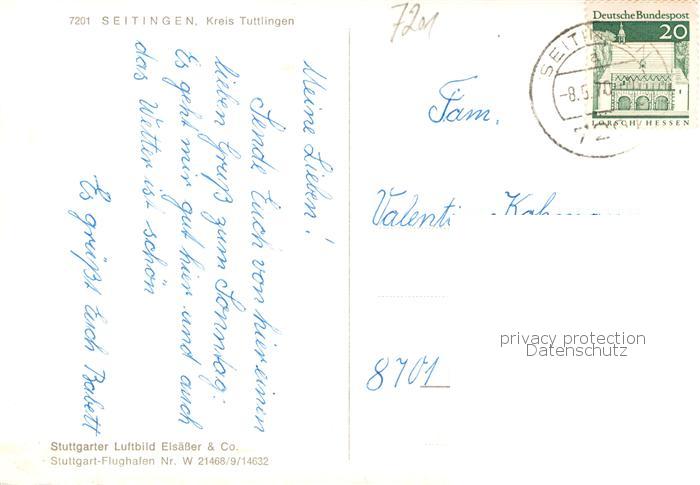 7201 SEITINGEN, Kreis Tuttlingen
7201
Meine Lieben!
Sende Euch von hier einen
lieben Gruß zum Sonntag.
Es geht mir gut hier und auch
das Wetter ist schön
Es grüßt Euch Babett
Stuttgarter Luftbild Elsäßer & Co.
Stuttgart-Flughafen Nr. W 21468/9/14632
Deutsche Bundespost
20
LORSCH / HESSEN
SEITINGEN
a
-8.5.70
72
Fam.
Valenti
8701
privacy protection
Datenschutz